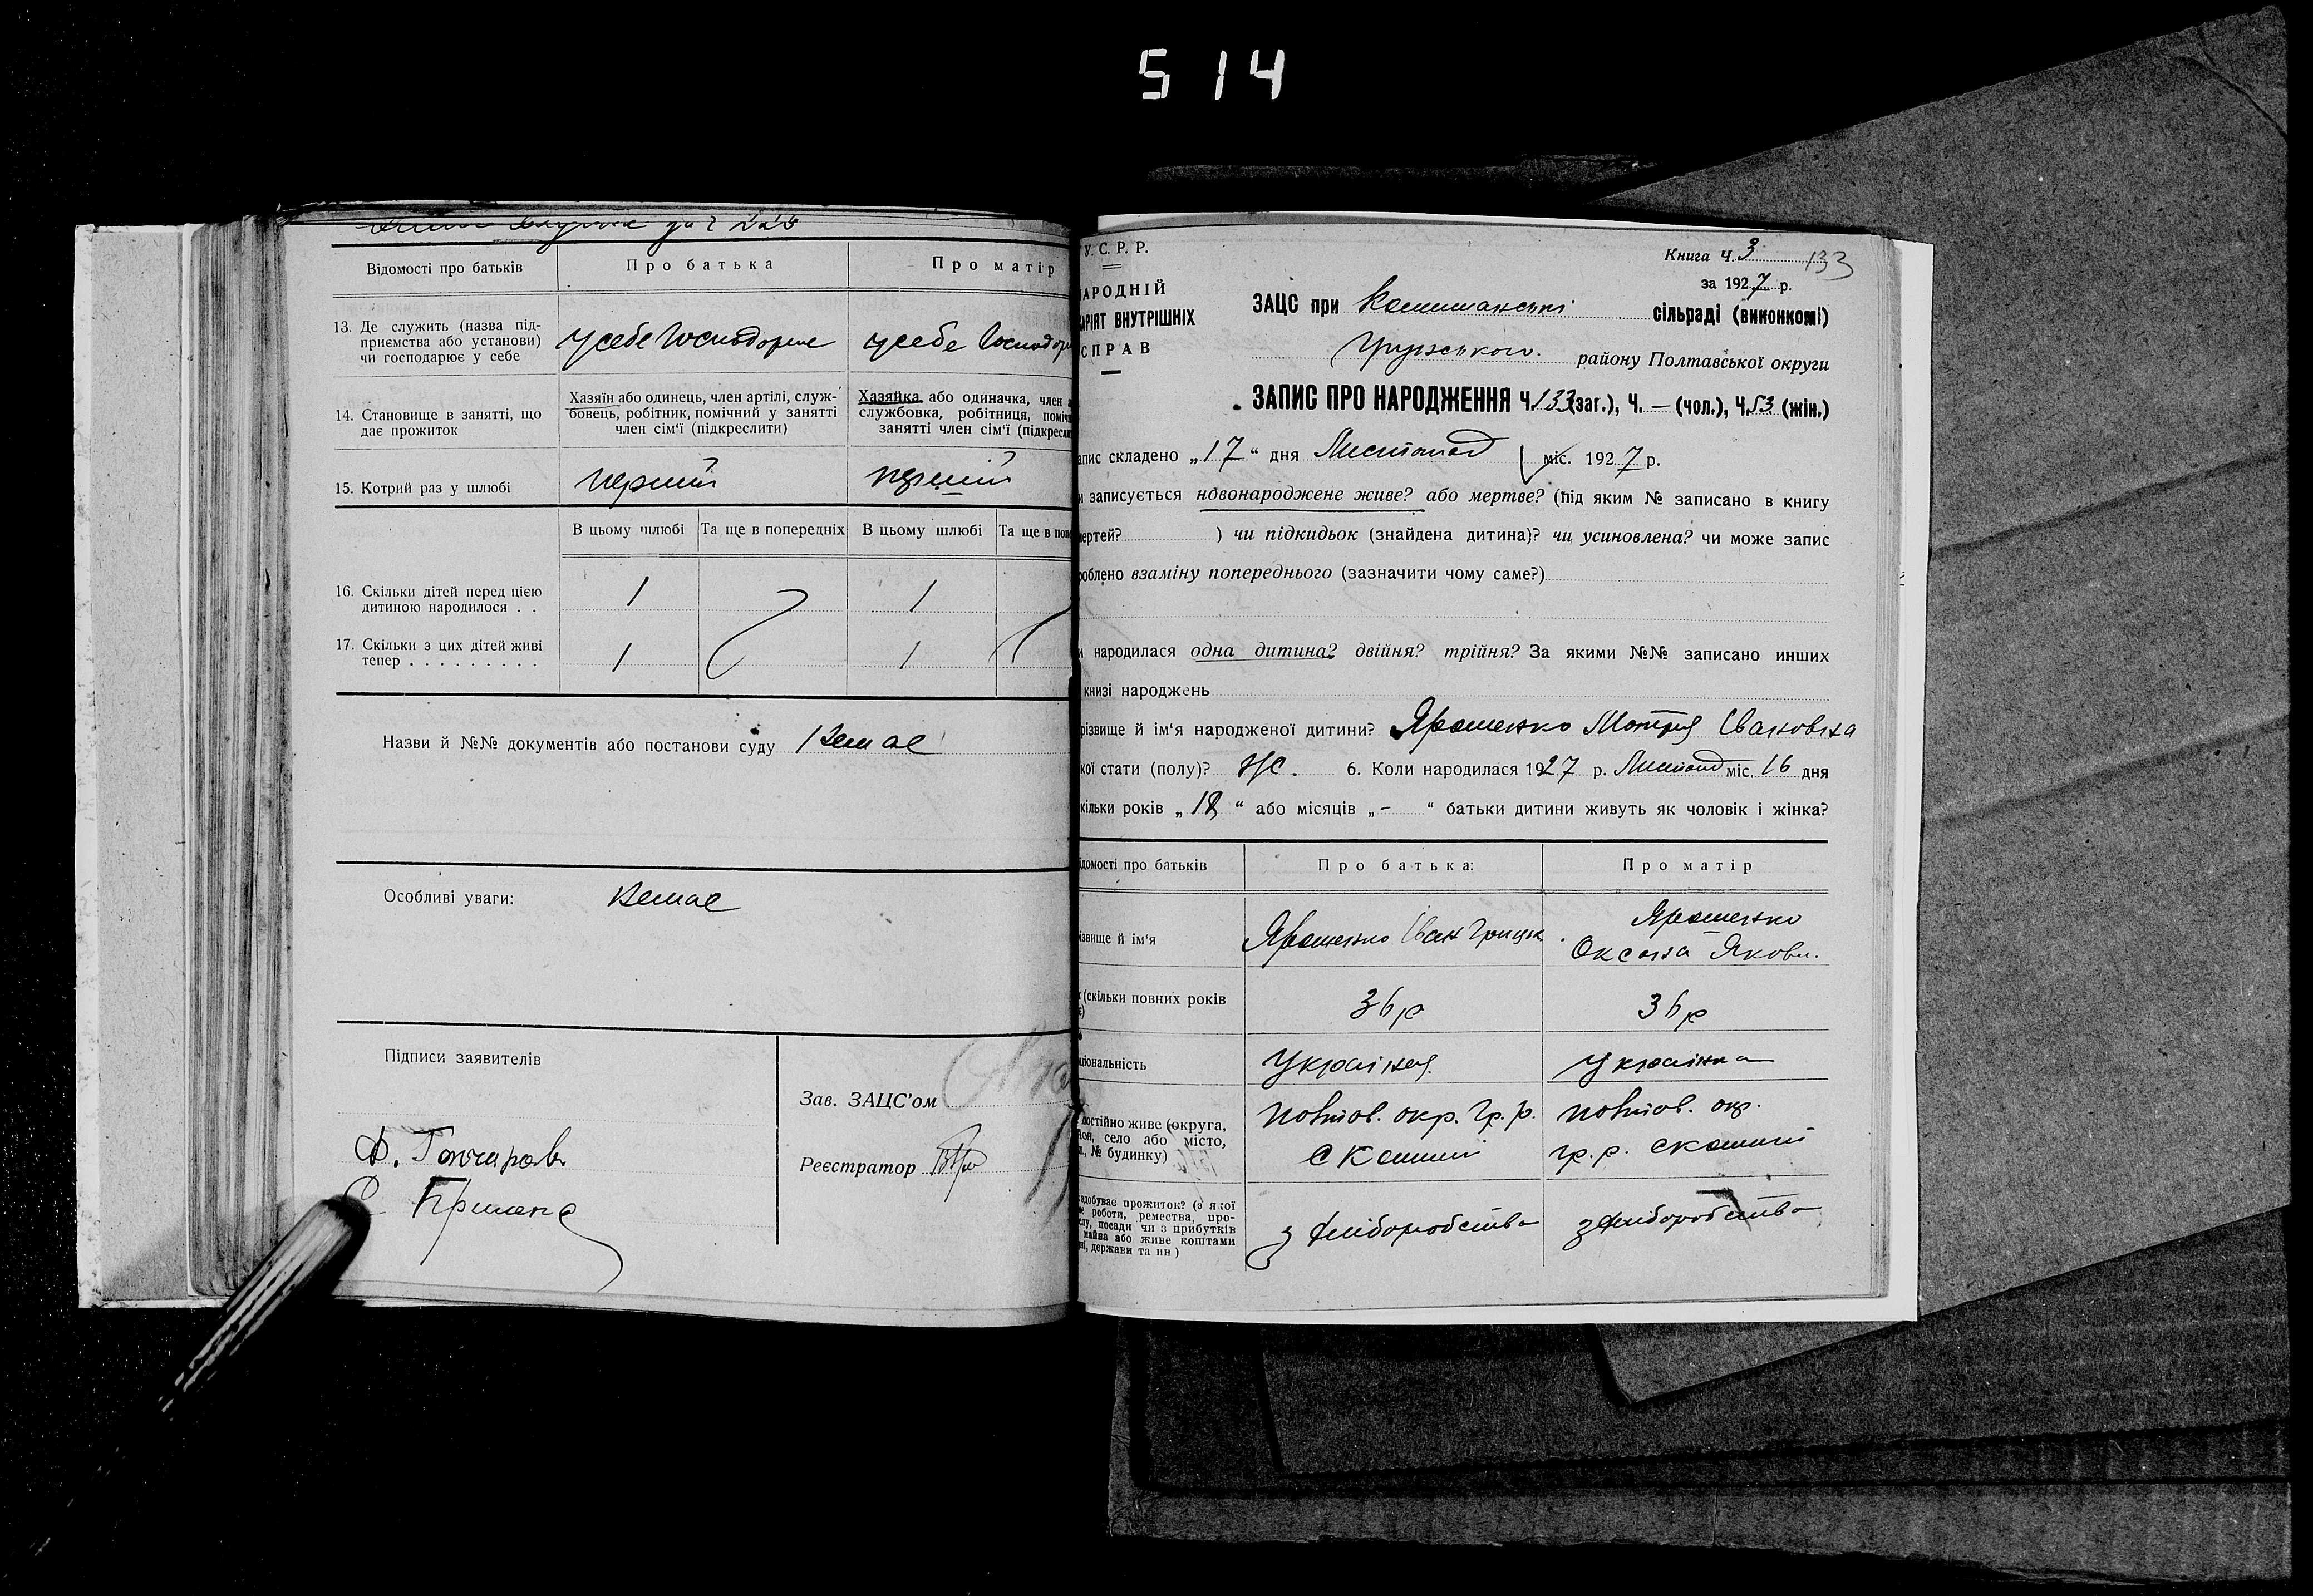 514
Відомості про батьків
Про батька
Про матір
13. Де служить (назва під-
приємства або установи)
чи господарює у себе
у себе
у себе
14. Становище в занятті, що
дає прожиток
Хазяїн або одинець, член артілі, служ-
бовець, робітник, помічний у занятті
член сім'ї (підкреслити)
Хазяйка або одиначка, член а
службовка, робітниця, поміч
занятті член сім'ї (підкресли
15. Котрий раз у шлюбі
перший
перший
В цьому шлюбі
Та ще в попередніх
В цьому шлюбі
Та ще в попе
16. Скільки дітей перед цією
дитиною народилося . .
1
1
17. Скільки з цих дітей живі
тепер . . . . . . . . .
1
1
Назви й №№ документів або постанови суду Немає
Особливі уваги: Немає
Підписи заявителів
Зав. ЗАЦС'ом
Реєстратор
Д. Гончаров
У. С. Р. Р.
АРОДНІЙ
АРІЯТ ВНУТРІШНІХ
СПРАВ
Книга Ч. 3
133
за 1927 р.
ЗАЦС при сільраді (виконкомі)
району Полтавської округи
ЗАПИС ПРО НАРОДЖЕННЯ Ч. 133 (заг.), Ч. — (чол.), Ч. 53 (жін.)
апис складено „17“ дня Листопад міс. 1927 р.
и записується новонароджене живе? або мертве? (під яким № записано в книгу
мертей? ) чи підкидьок (знайдена дитина)? чи усиновлена? чи може запис
роблено взаміну попереднього (зазначити чому саме?)
и народилася одна дитина? двійня? трійня? За якими №№ записано инших
книзі народжень
різвище й ім'я народженої дитини? Ярошенко Мотря Івановна
кої стати (полу)? Ж. 6. Коли народилася 1927 р. Листопад міс. 16 дня
кільки років „18“ або місяців „-“ батьки дитини живуть як чоловік і жінка?
ідомості про батьків
Про батька:
Про матір
ізвище й ім'я
Ярошенко Іван Грицьк.
Ярошенко
Оксана Яковл.
к (скільки повних років
36 р
36 р
ціональність
Українец
Українка
постійно живе (округа,
йон, село або місто,
л., № будинку)
Полтав. окр. Гр. р.
Полтав. окр.
Гр. р.
здобуває прожиток? (з якої
ме роботи, ремества, про-
слу, посади чи з прибутків
майна або живе коштами
ні, держави та ин)
з хліборобства
з хліборобства